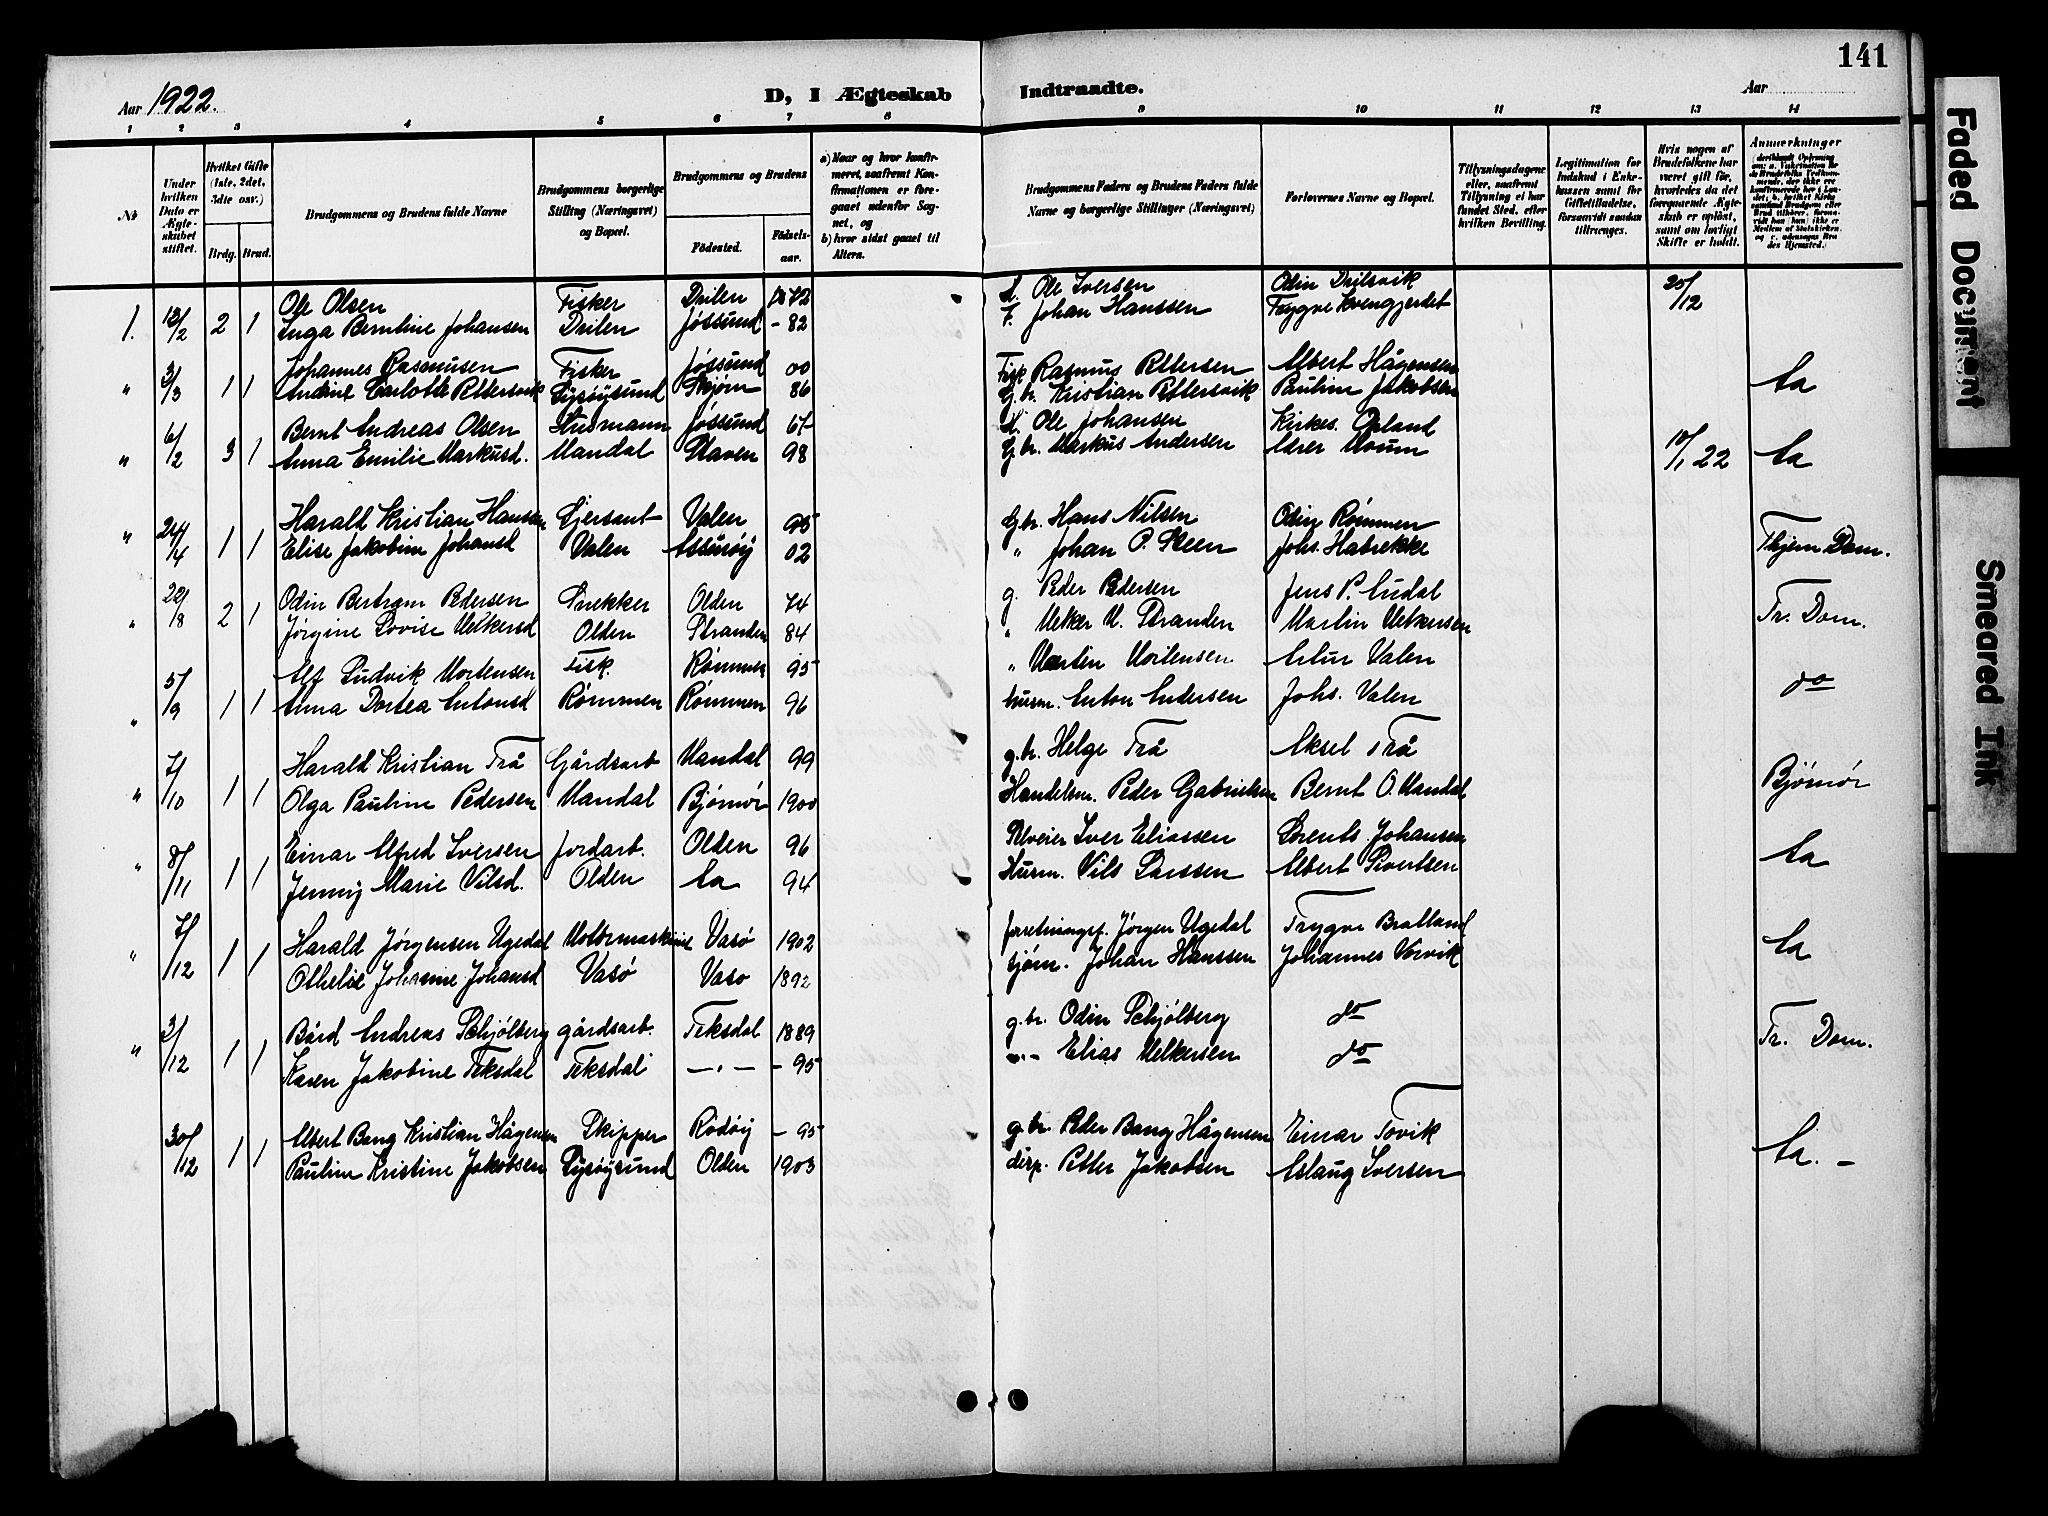 141
Aar 1922.
D, I Ægteskab Indtraadte.
Aar
1 2 3 4 5 6 7 8 9 10 11 12 13 14
№
Under hvilken Dato er Ægteskabet stiftet.
Hvilket Gifte (1ste, 2det, 3dte osv.)
Brdg. Brud.
Brudgommens og Brudens fulde Navne
Brudgommens borgerlige Stilling (Næringsvei) og Bopæl.
Brudgommens og Brudens
Födested. Födselsaar.
a) Naar og hvor konfirmeret, saafremt Konfirmationen er foregaaet udenfor Sognet, og
b) hvor sidst gaaet til Alters.
Brudgommens Faders og Brudens Faders fulde Navne og borgerlige Stillinger (Næringsvei)
Forlovernes Navne og Bopæl.
Tillysningsdagene eller, saafremt Tillysning ei har fundet Sted, efter hvilken Bevilling.
Legitimation for Indskud i Enkekassen samt for Giftetilladelse, forsaavidt saadan tiltrænges.
Hvis nogen af Brudefolkene har været gift før, hvorledes da det foregaaende Ægteskab er opløst, samt om lovligt Skifte er holdt.
Anmærkninger
Ole Olsen Fisker Drilen 1872 Ole Iversen Odin Drilsvik 20/12
1. 13/2 2 1 Inga Berntine Johansen Drilen Jøssund - 82 F. Johan Hanssen Trygve Kvengjerdet
Johannes Rasmusen Fisker Jøssund 00 Rasmus Pettersen Albert Hågensen
" 3/3 1 1 Andrine Charlotte Pettersvik Lysøysund Skjørn 86 G.br. Kristian Pettersvik Pauline Jakobsen Aa
Bernt Andreas Olsen Stuemann Jøssund 67 Ole Johansen Kirkes. Opland
" 6/2 3 1 Anna Emilie Markusd. Mandal Staven 98 G.br. Markus Andersen 10/1 22 Aa
Harald Kristian Hansen Valen 95 G.br. Hans Nilsen Odin Rømmen
" 24/4 1 1 Elise Jakobine Johansd Valen Assusøy 02 " Johan P. Steen Johs. Habrekke Thjem Dom.
Odin Bertram Pedersen Snekker Olden 74 g. Peder Pedersen Jens P. Audal
" 22/8 2 1 Jørgine Lovise Melkersd Olden Stranden 84 " Melker M. Stranden Martin Melkersen Tr. Dom.
Alf Ludvik Mortensen Fisk. Rømmen 95 " Martin Mortensen Artur Valen
" 5/9 1 1 Anna Dortea Antonsd Rømmen Rømmen 96 husm. Anton Andersen Johs. Valen do
Harald Kristian Trå Gårdsarb Mandal 99 g.br. Helge Trå Aksel Trå
" 7/10 1 1 Olga Pauline Pedersen Mandal Bjørnør 1900 Handelsm. Peder Gabrielsen Bernt O. Mandal Bjørnør
Einar Alfred Iversen Jordarb. Olden 96 Selveier Iver Eliassen Lorents Johansen
" 8/11 1 1 Jenny Marie Nilsd. Olden Aa 94 Husm. Nils Larssen Albert Sivertsen Aa
Harald Jørgensen Ugedal Motormaskine Vasø 1902 forretningsf. Jørgen Ugedal Trygve Bratland
" 7/12 1 1 Othelie Johanne Johansd Vasø Vasø 1892 sjøm. Johan Hanssen Johannes Vervik Aa
Bård Andreas Schjølberg gårdsarb. Teksdal 1889 g.br. Odin Schjølberg do
" 3/12 1 1 Karen Jakobine Teksdal Teksdal -"- - 95 -"- Elias Melkersen do Tr. Dom.
Albert Bang Kristian Hågensen Skipper Rødøy - 95 g.br. Peder Bang Hågensen Einar Tovik
30/12 1 1 Pauline Kristine Jakobsen Lysøysund Olden 1903 disp. Petter Jakobsen Aslaug Iversen Aa. -
Faded Document
Smeared Ink